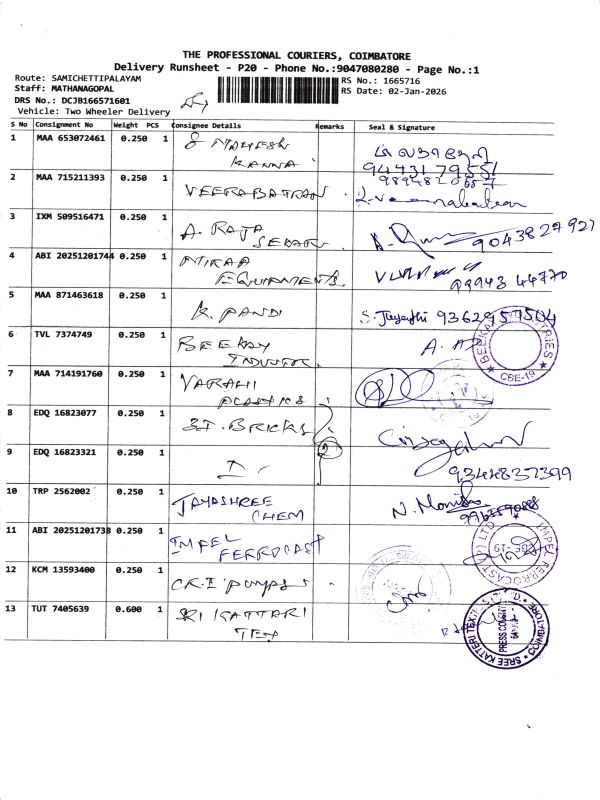 THE PROFESSIONAL COURIERS, COIMBATORE
Delivery Runsheet - P20 - Phone No.:9047080280 - Page No.:1
Route: SAMICHETTIPALAYAM
RS No.: 1665716
Staff: MATHANAGOPAL
RS Date: 02-Jan-2026
DRS No.: DCJB166571601
Vehicle: Two Wheeler Delivery
S No Consignment No Weight PCS Consignee Details Remarks Seal & Signature
1 MAA 653072461 0.250 1 S MAHESH
KANNA 94431 79551
2 MAA 715211393 0.250 1 VEERABATRAN
3 IXM 509516471 0.250 1 A. RAJA
SEKARAN 9043827927
4 ABI 20251201744 0.250 1 MIRAA
EQUIPMENTS 99943 44770
5 MAA 871463618 0.250 1 K. PANDI S. Jeyanthi 9362957504
6 TVL 7374749 0.250 1 BEEKAY
INDUSTR CBE-19
7 MAA 714191760 0.250 1 VARAHI
PLASTICS
8 EDQ 16823077 0.250 1 3I. BRICKS
9 EDQ 16823321 0.250 1 9344837399
10 TRP 2562002 0.250 1 JAYASHREE
CHEM N. Monisha
11 ABI 20251201738 0.250 1 IMPEL
FERROCAST IMPEL FERROCAST (P) LTD
12 KCM 13593400 0.250 1 C.R.I PUMPS
13 TUT 7405639 0.600 1 SRI KATTARI
TEX SREE KATTERI TEX COIMBATORE